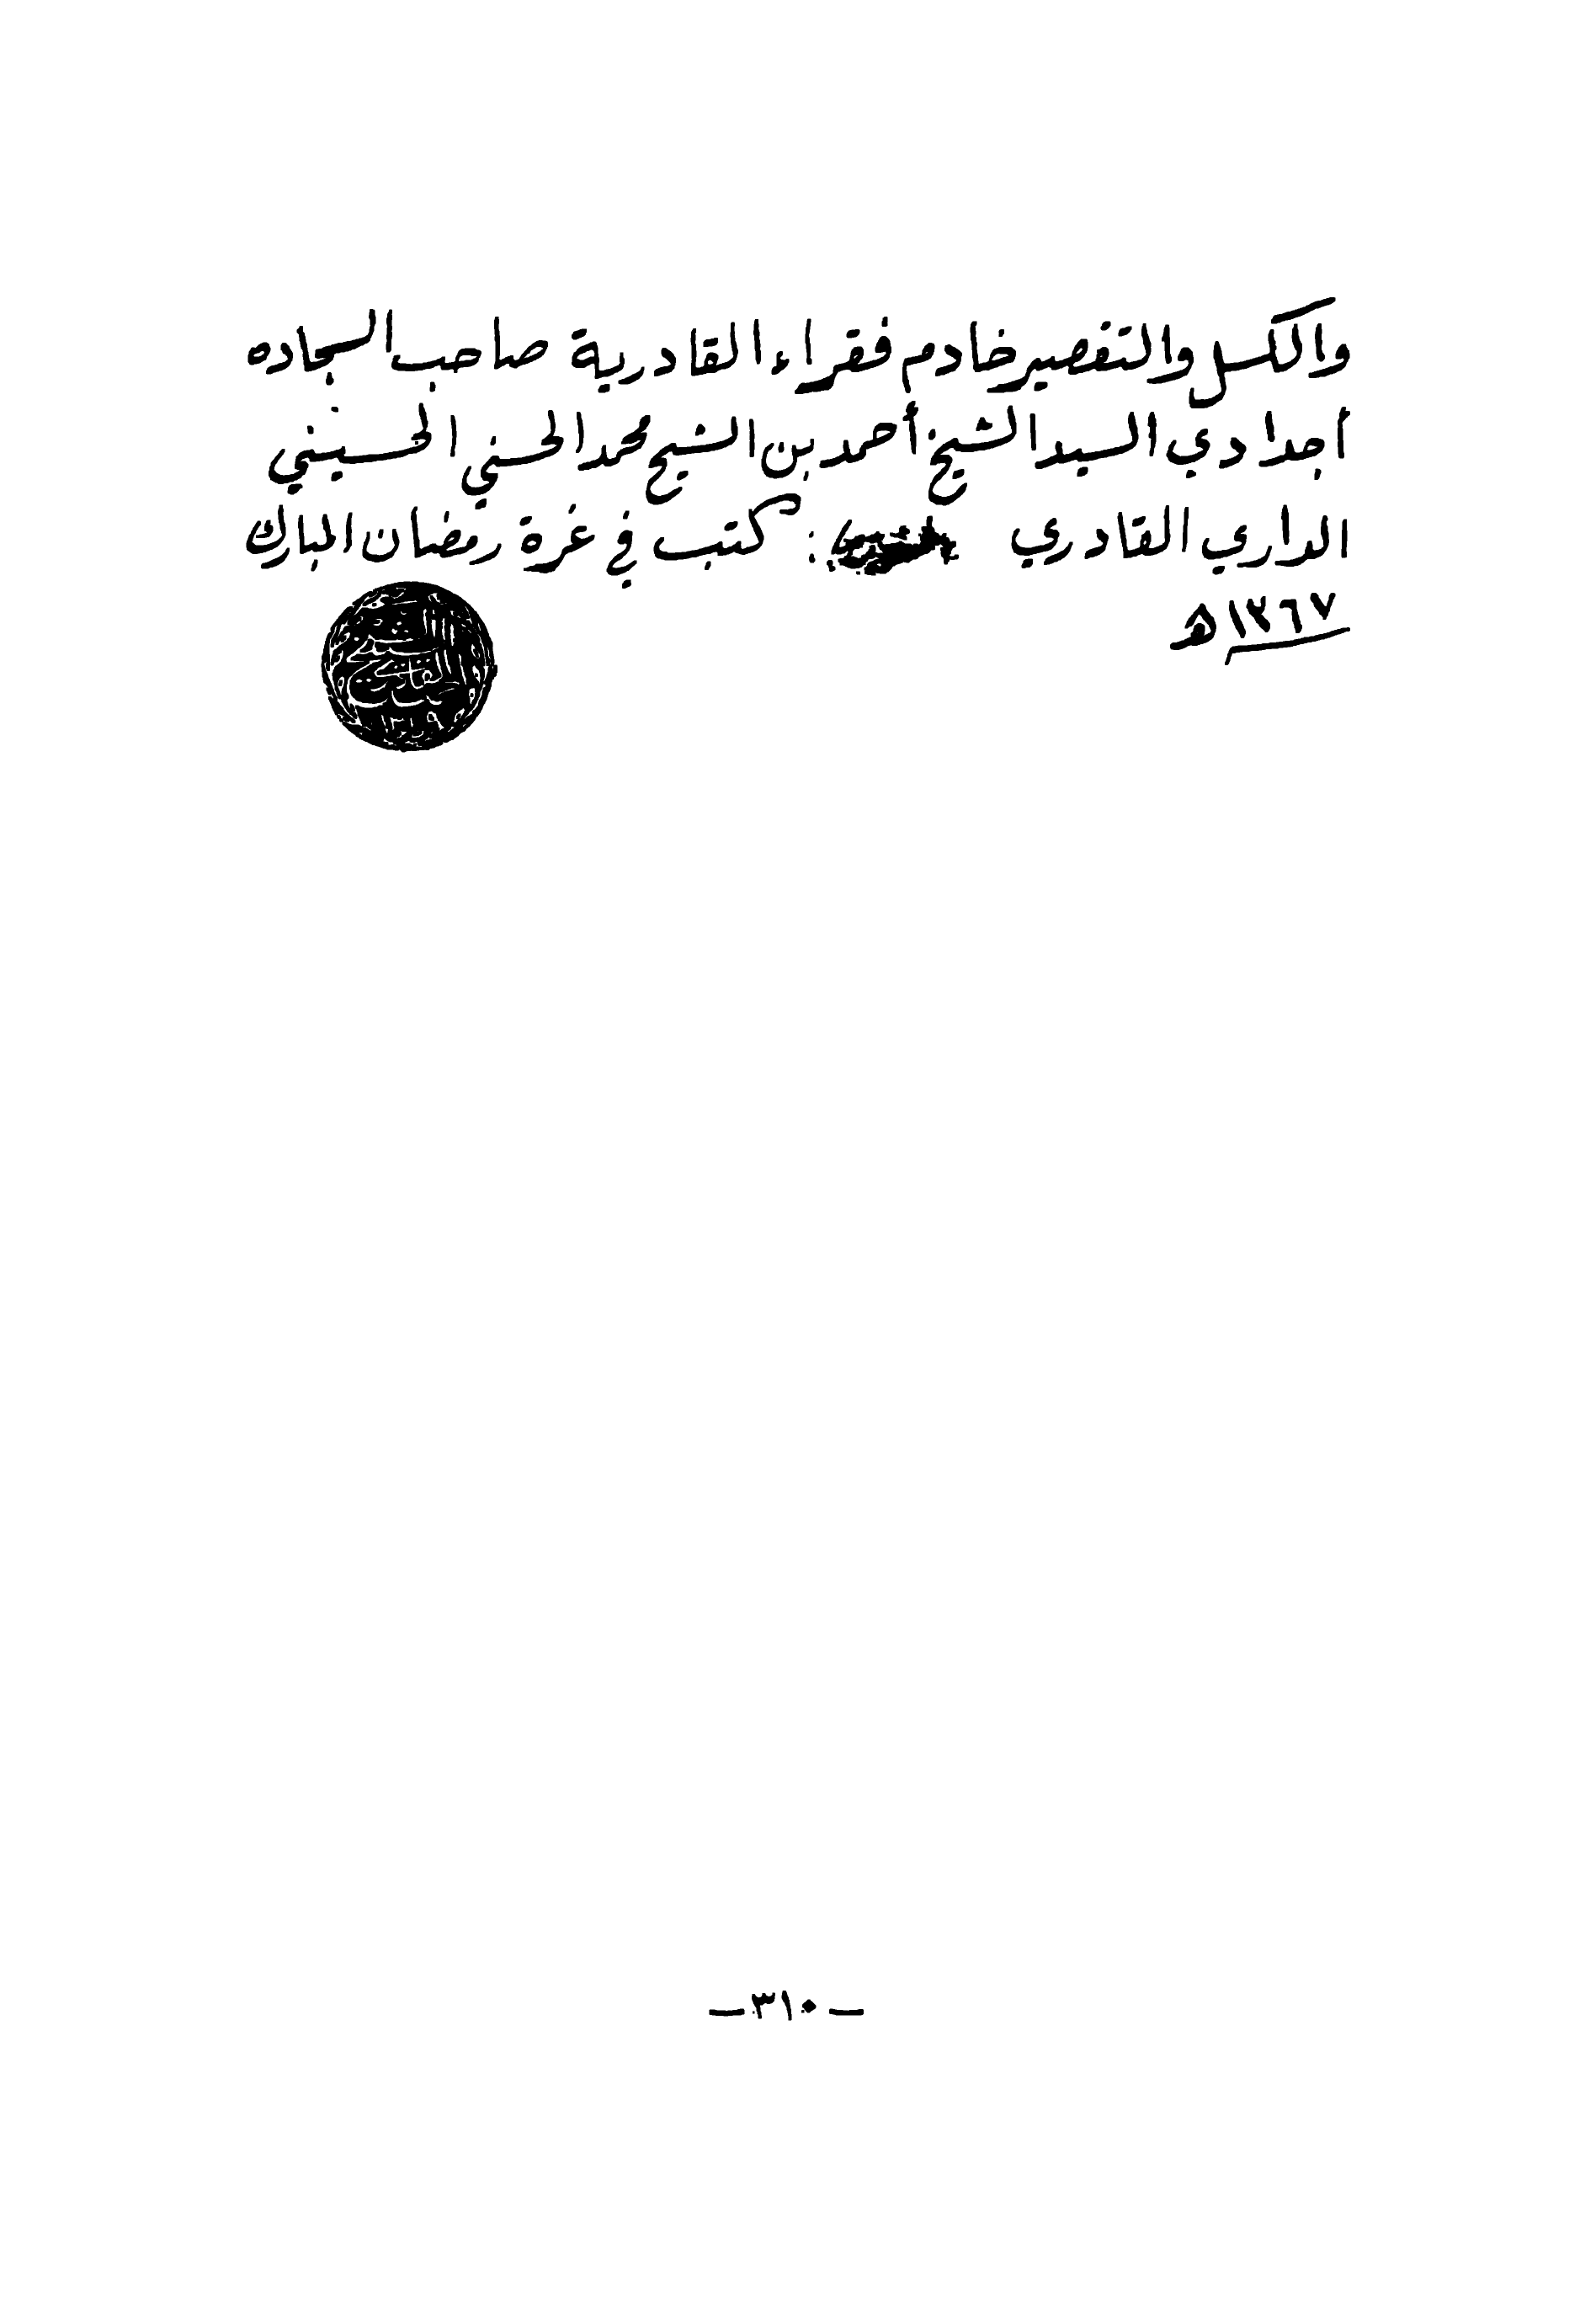 والكسل والتقصير خادم فقراء القادرية صاحب السجاده
أجدادي السيد الشيخ أحمد بن الشيخ محمد الحسني الحسيني
الداري القادري : كتب في غرة رمضان المبارك
١٣٦٧ هـ
— ٣١٠ —